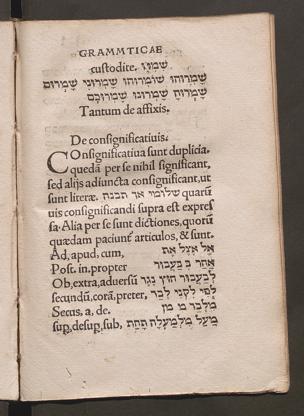 GRAMMTICAE
custodite.
שמרוהו שומרוהו שמרוני שמרום
Tantum de affixis.
De consignificatiuis.
COnsignificatiua sunt duplicia.
quedã per se nihil significant,
sed alijs adiuncta consignificant, ut
sunt literæ. שלומי אך תבנה quarũ
uis consignificandi supra est expres
sa. Alia per se sunt dictiones, quorũ
quædam paciunt articulos, & sunt.
Ad, apud, cum, אל אצל את
Post. in, propter אחר ב בעבור
Ob, extra, aduersũ לבעבור חוץ נגד
secundũ, corã, preter, לפי לפני לבד
Secus. a, de. מלבד מ מן
sup, desup, sub, מעל מלמעלה תחת